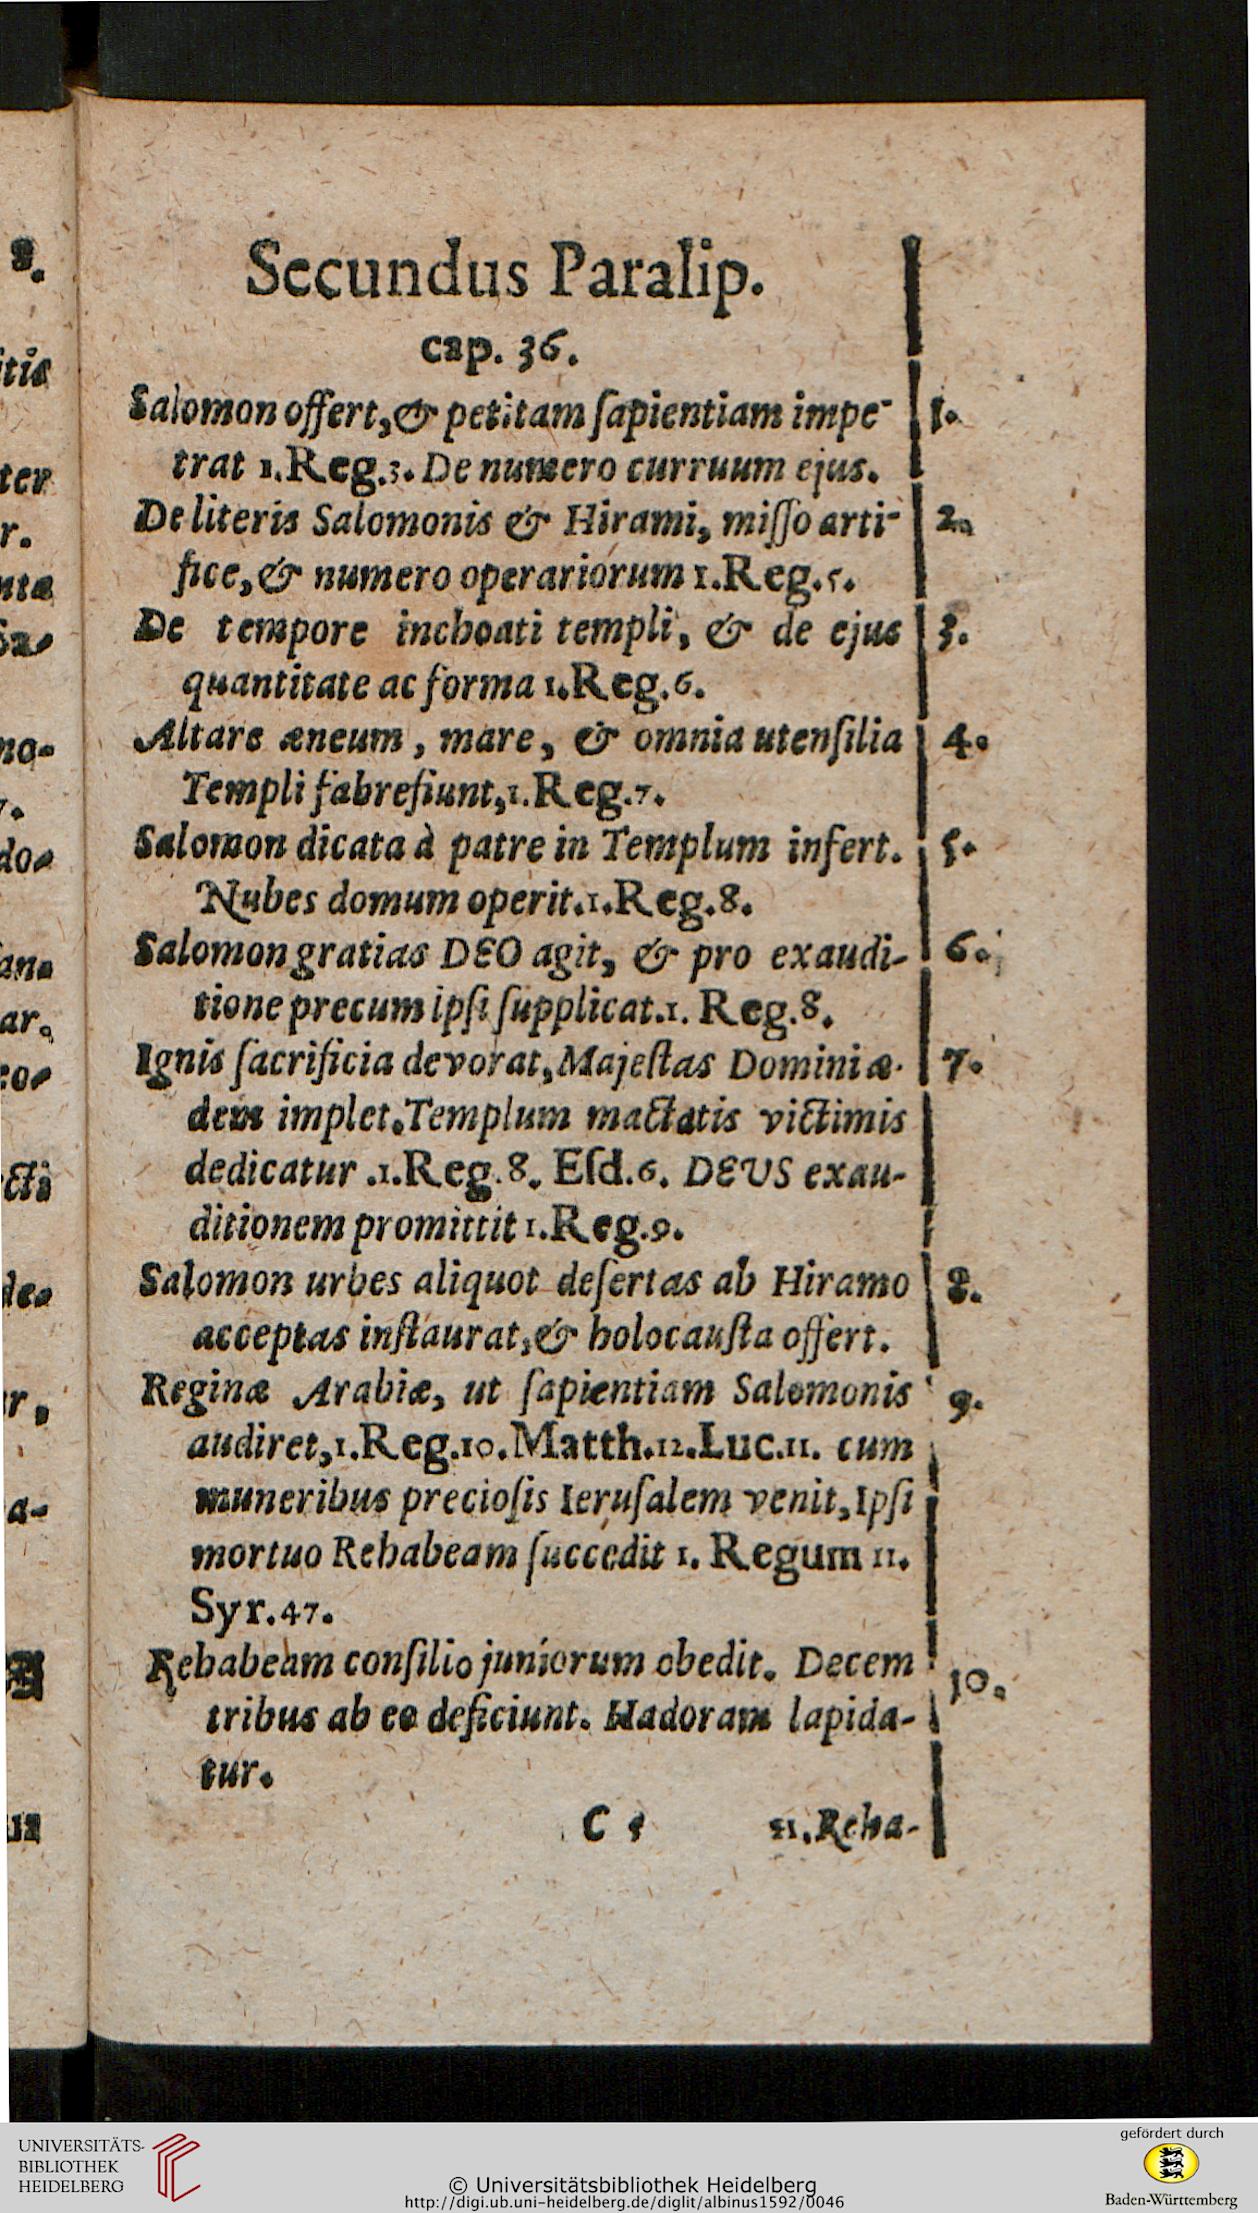 Secundus Paralip.
cap. 36.
Salomon offert,& petitam ſapientiam impe- 1.
trat 1.Reg.3. De numero curruum ejus.
De literis Salomonis & Hirami, miſſo arti- 2.
fice,& numero operariorum 1.Reg.5.
De tempore inchoati templi, & de ejus 3.
quantitate ac forma 1.Reg.6.
Altare æneum, mare, & omnia utenſilia 4.
Templi fabrefiunt,1.Reg.7.
Salomon dicata à patre in Templum infert. 5.
Nubes domum operit.1.Reg.8.
Salomon gratias DEO agit, & pro exaudi- 6.
tione precum ipſi ſupplicat.1. Reg.8.
Ignis ſacrificia devorat,Majeſtas Domini æ- 7.
dem implet.Templum mactatis victimis
dedicatur .1.Reg.8. Eſd.6. DEUS exau-
ditionem promittit 1.Reg.9.
Salomon urbes aliquot deſertas ab Hiramo 8.
acceptas inſtaurat,& holocauſta offert.
Reginæ Arabiæ, ut ſapientiam Salomonis 9.
audiret,1.Reg.10.Matth.12.Luc.11. cum
muneribus precioſis Ieruſalem venit,Ipſi
mortuo Rehabeam ſuccedit 1. Regum 11.
Syr.47.
Rehabeam conſilio juniorum obedit. Decem 10.
tribus ab eo deficiunt. Hadoram lapida-
tur.
C 11.Reha-
UNIVERSITÄTS-
BIBLIOTHEK
HEIDELBERG
© Universitätsbibliothek Heidelberg
http://digi.ub.uni-heidelberg.de/diglit/albinus1592/0046
gefördert durch
Baden-Württemberg